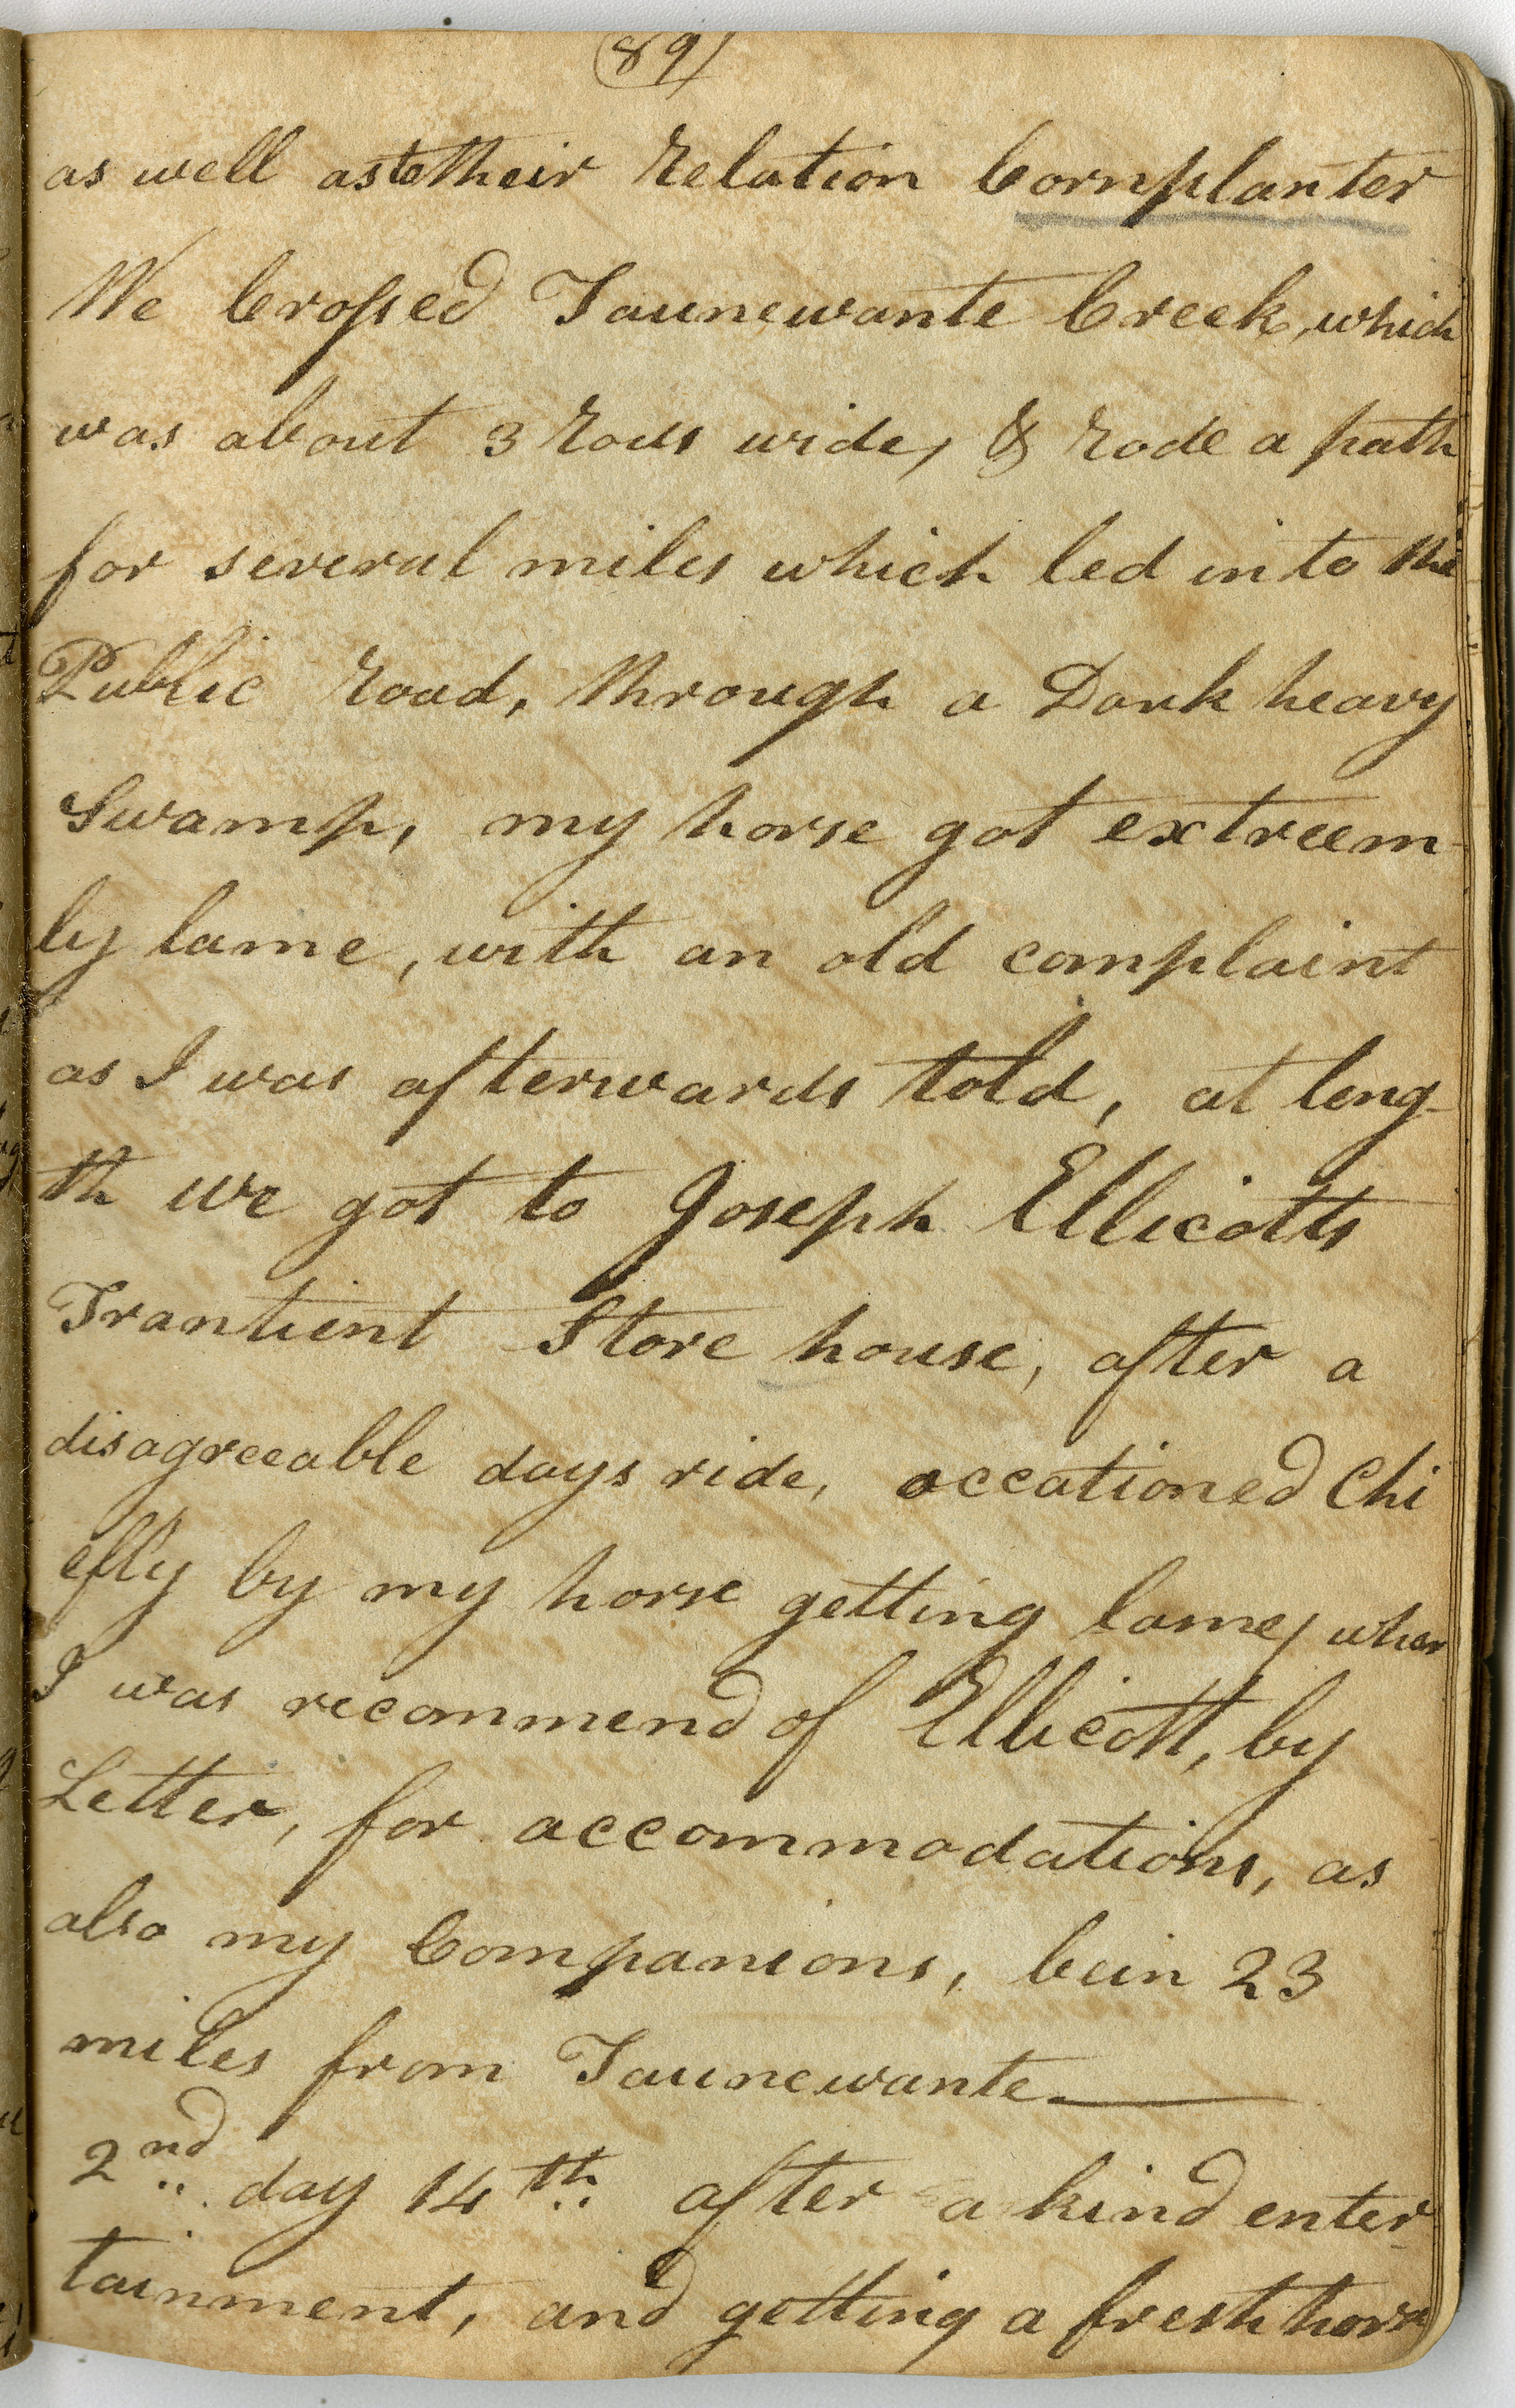 89
as well as to their relation Cornplanter
We Crossed Taunewante Creek, which
was about 3 rods wide, & rode a path
for several miles which led into the
Public road, through a Dark heavy
Swamp, my horse got extreem-
ly lame, with an old complaint
as I was afterwards told, at leng-
th we got to Joseph Ellicotts
Trantient Store house, after a
disagreeable days ride, occationed Chi
efly by my horse getting lame, when
I was recommend of Ellicott, by
Letter, for accommodations, as
also my Companions, bein 23
miles from Taunewante
2nd day 14th after a kind enter-
tainment, and getting a fresh horse